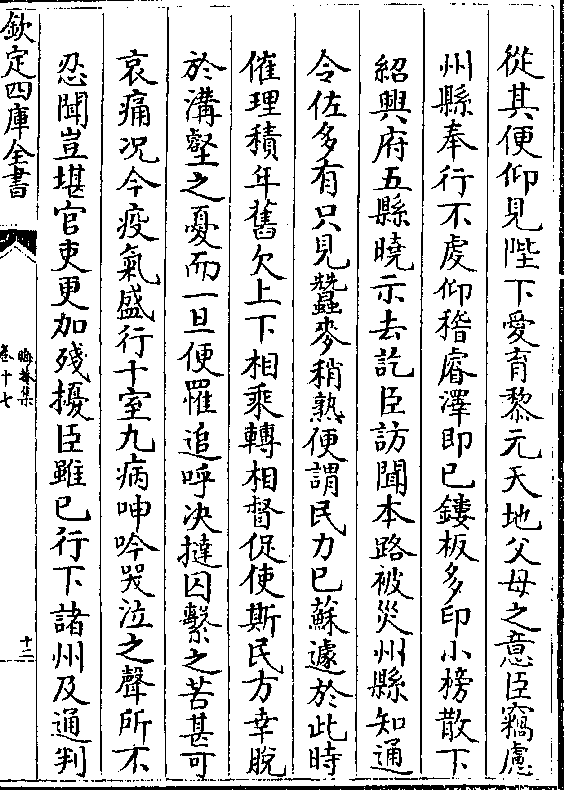 從其便仰見陛下愛育黎元天地父母之意臣竊慮
州縣奉行不䖍仰稽睿澤即已鏤板多印小榜散下
紹興府五縣曉示去訖臣訪聞本路被災州縣知通
令佐多有只見蠶麥稍熟便謂民力已蘇遽於此時
催理積年舊欠上下相乘轉相督促使斯民方幸脫
於溝壑之憂而一旦便罹追呼決撻囚繫之苦甚可
哀痛况今疫氣盛行十室九病呻吟哭泣之聲所不
忍聞豈堪官吏更加殘擾臣雖已行下諸州及通判
欽定四庫全書
晦菴集
卷十七
十二